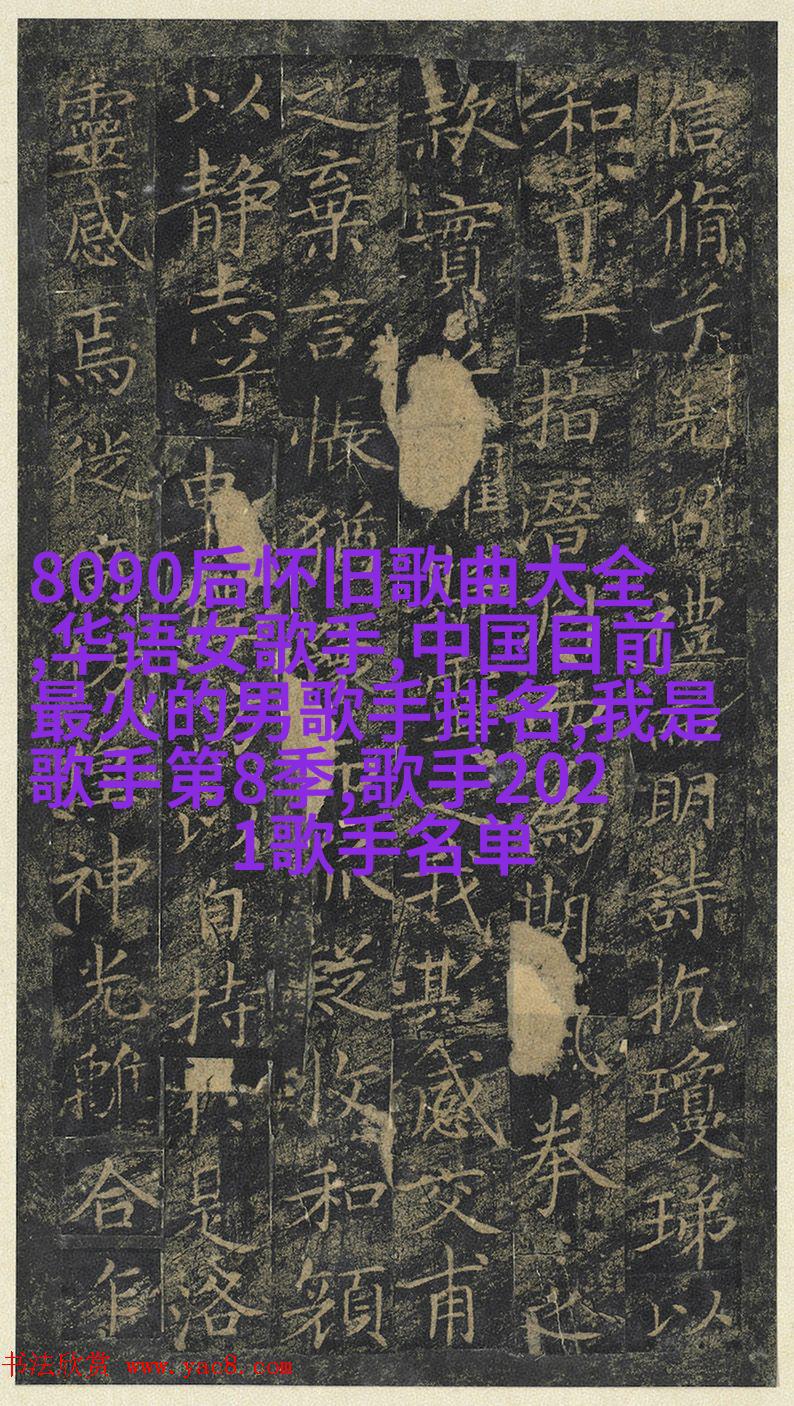 8090后怀旧歌曲大全
,华语女歌手,中国目前
最火的男歌手排名,我是
歌手第8季,歌手202
1歌手名单
信脩兮羌習禮明詩抗瓊珶以
和予兮指潛為期拳之
款實我其感交甫
之棄言悵猶收和顏
以静志兮申以自持是洛
靈感焉徙神光離合乍
书法欣赏 www.yac8.com